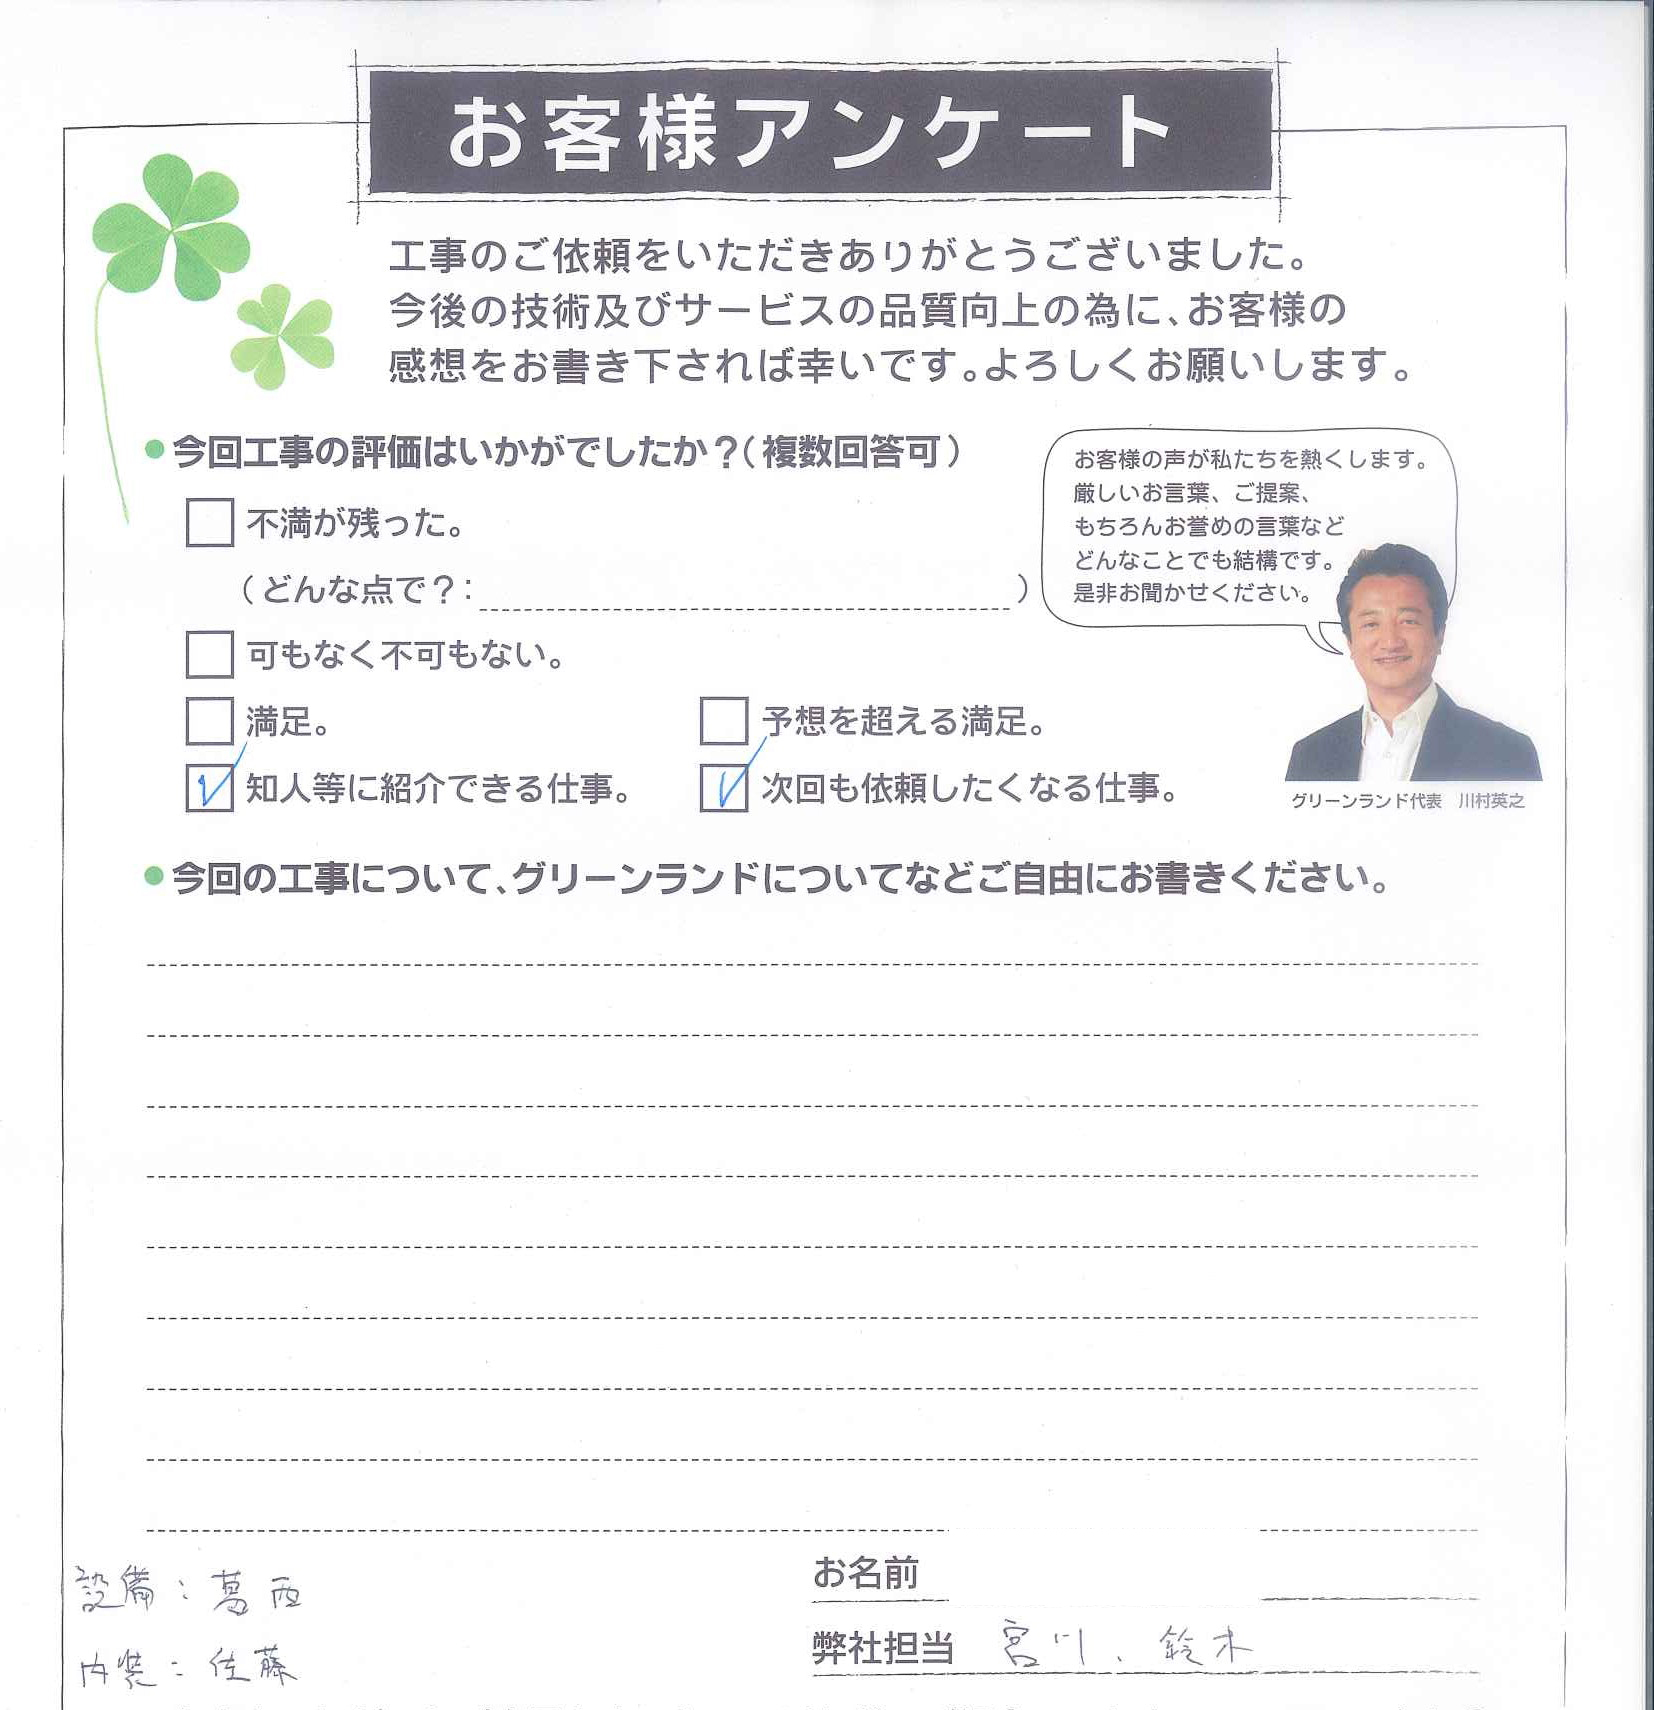 お客様アンケート
工事のご依頼をいただきありがとうございました。
今後の技術及びサービスの品質向上の為に、お客様の
感想をお書き下されば幸いです。よろしくお願いします。
●今回工事の評価はいかがでしたか?(複数回答可)
不満が残った。
(どんな点で?: )
可もなく不可もない。
満足。 予想を超える満足。
知人等に紹介できる仕事。 次回も依頼したくなる仕事。
お客様の声が私たちを熱くします。
厳しいお言葉、ご提案、
もちろんお誉めの言葉など
どんなことでも結構です。
是非お聞かせください。
グリーンランド代表 川村英之
●今回の工事について、グリーンランドについてなどご自由にお書きください。
設備:葛西
内装:佐藤
お名前
弊社担当 宮川、鈴木